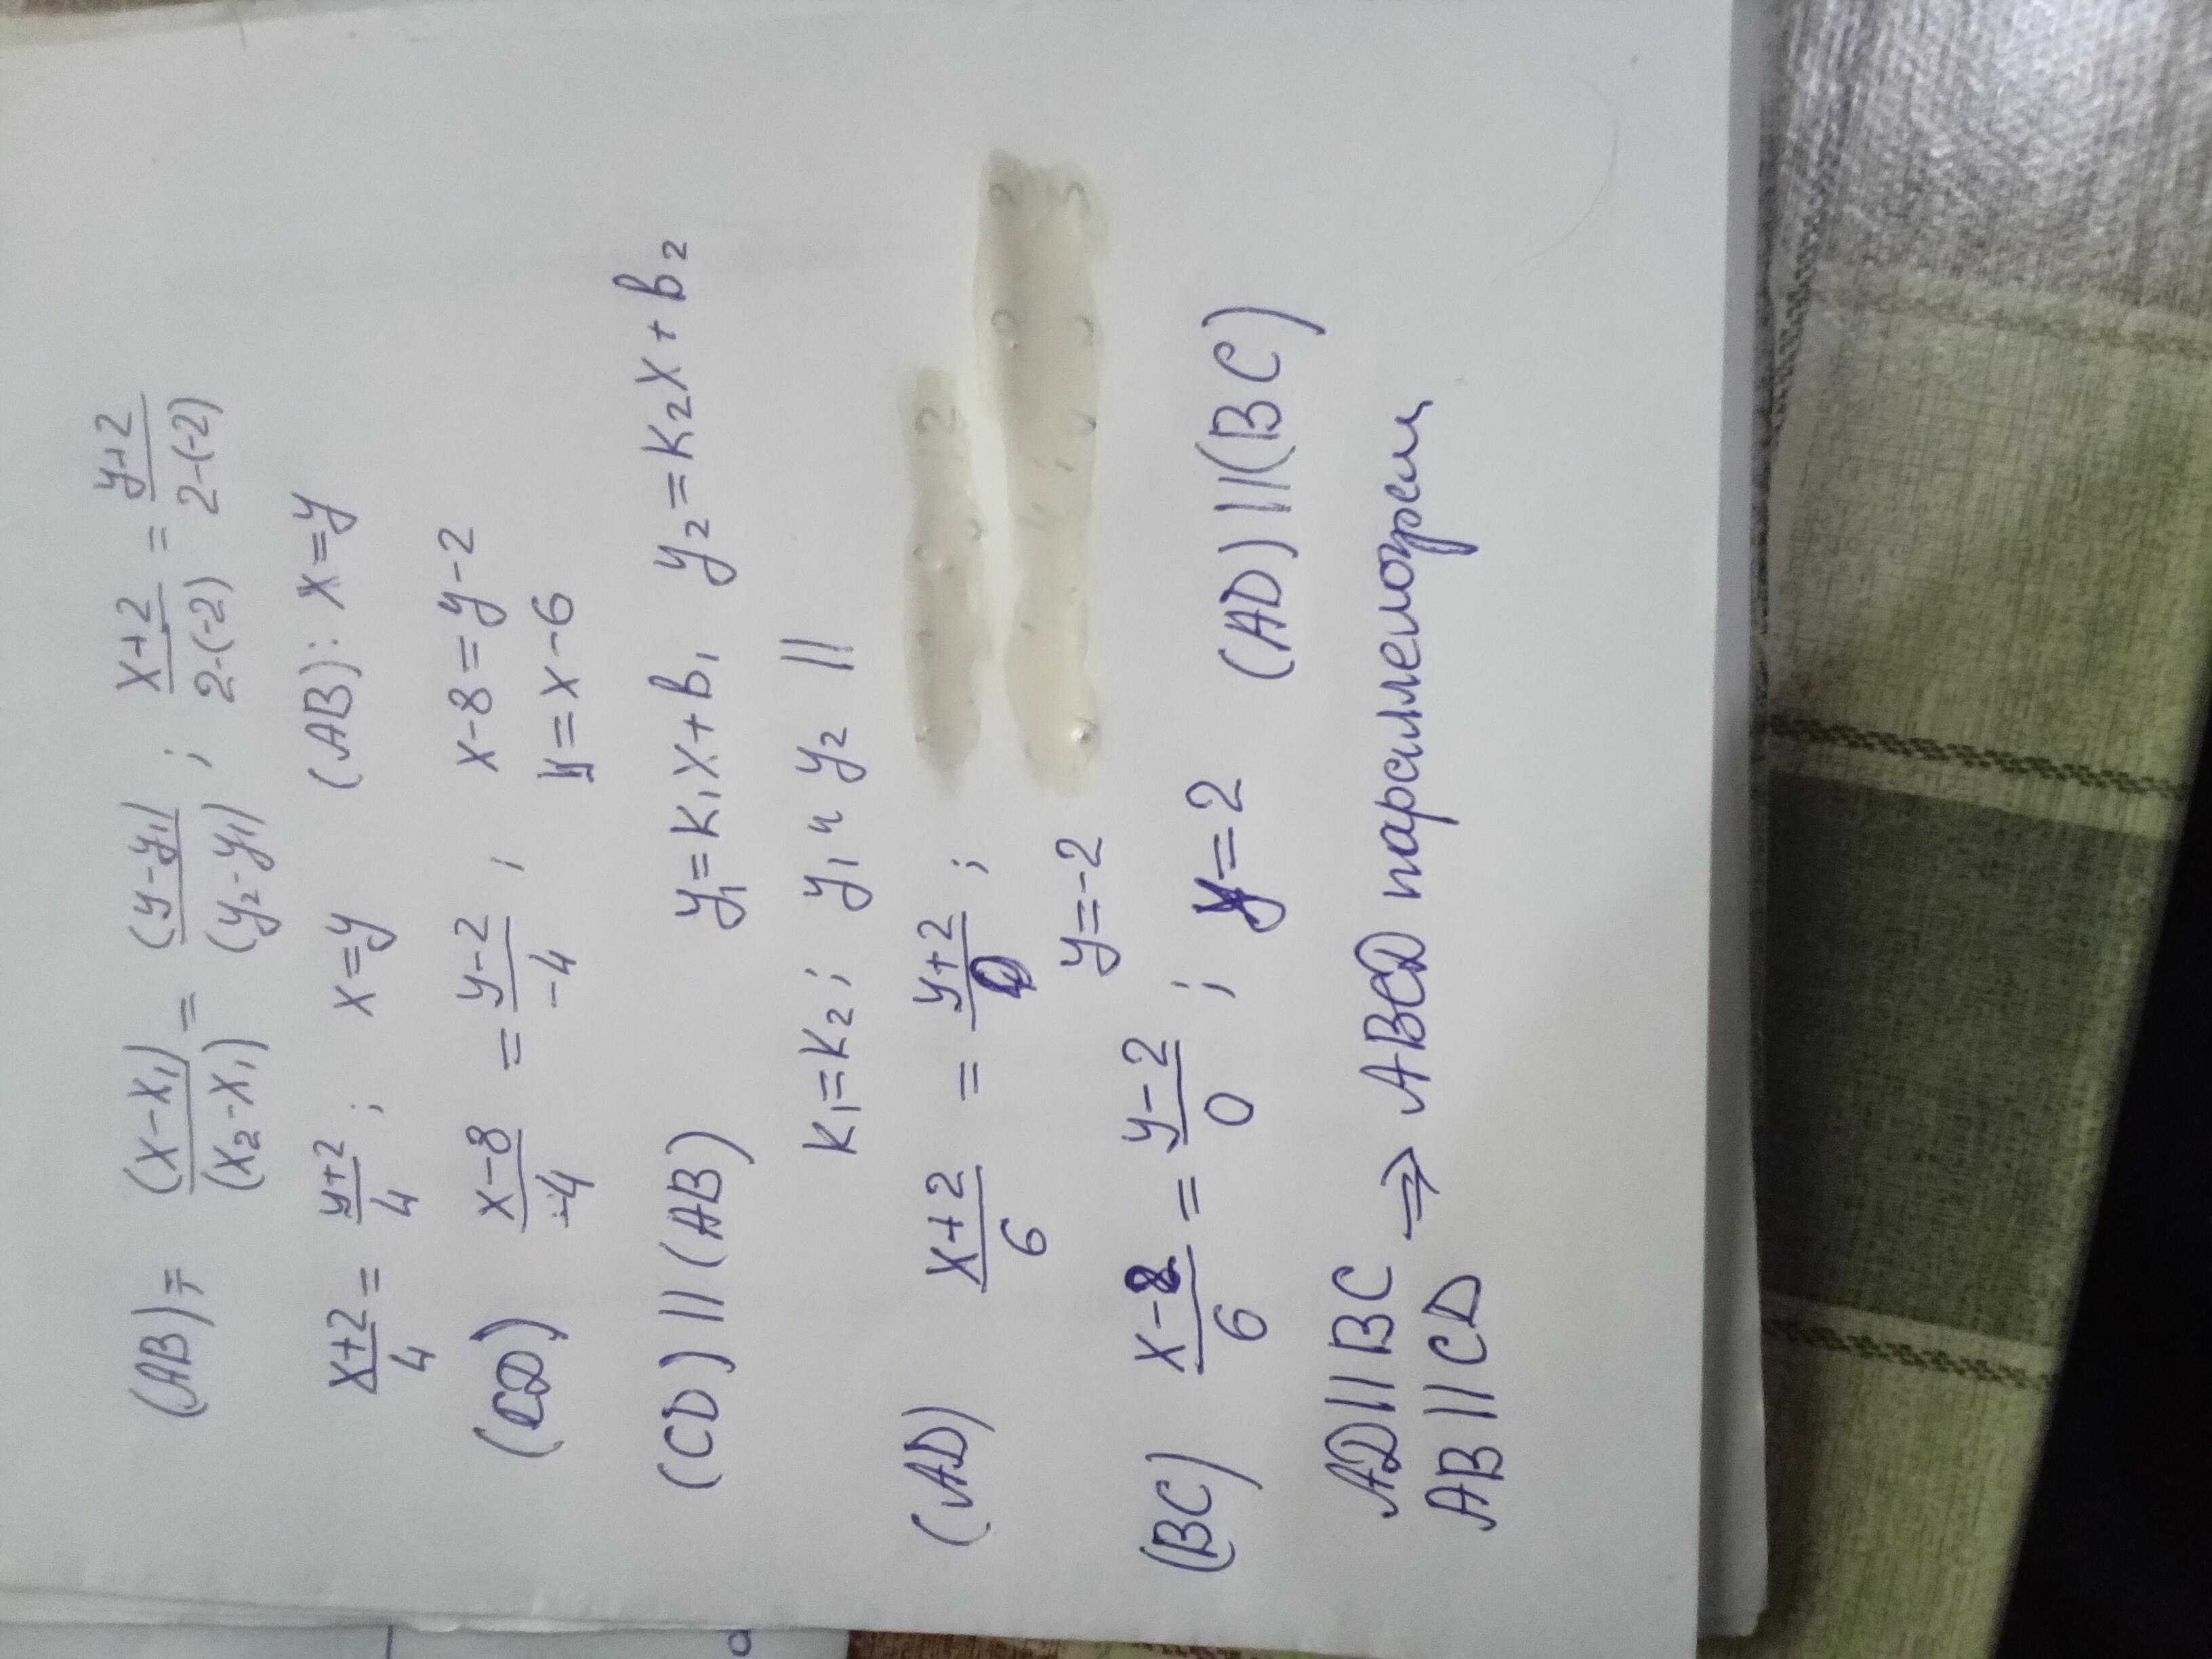 (AB) = (x-x₁)/(x₂-x₁) = (y-y₁)/(y₂-y₁) ; x+2/2-(-2) = y+2/2-(-2)
x+2/4 = y+2/4 ; x=y (AB): x=y
(CD) x-8/-4 = y-2/-4 , x-8=y-2
y=x-6
(CD) || (AB) y₁=k₁x+b₁ y₂=k₂x+b₂
k₁=k₂; y₁ и y₂ ||
(AD) x+2/6 = y+2/0 ;
y=-2
(BC) x-8/6 = y-2/0 ; y=2 (AD)||(BC)
AD||BC
AB||CD ⇒ ABCD параллелограм